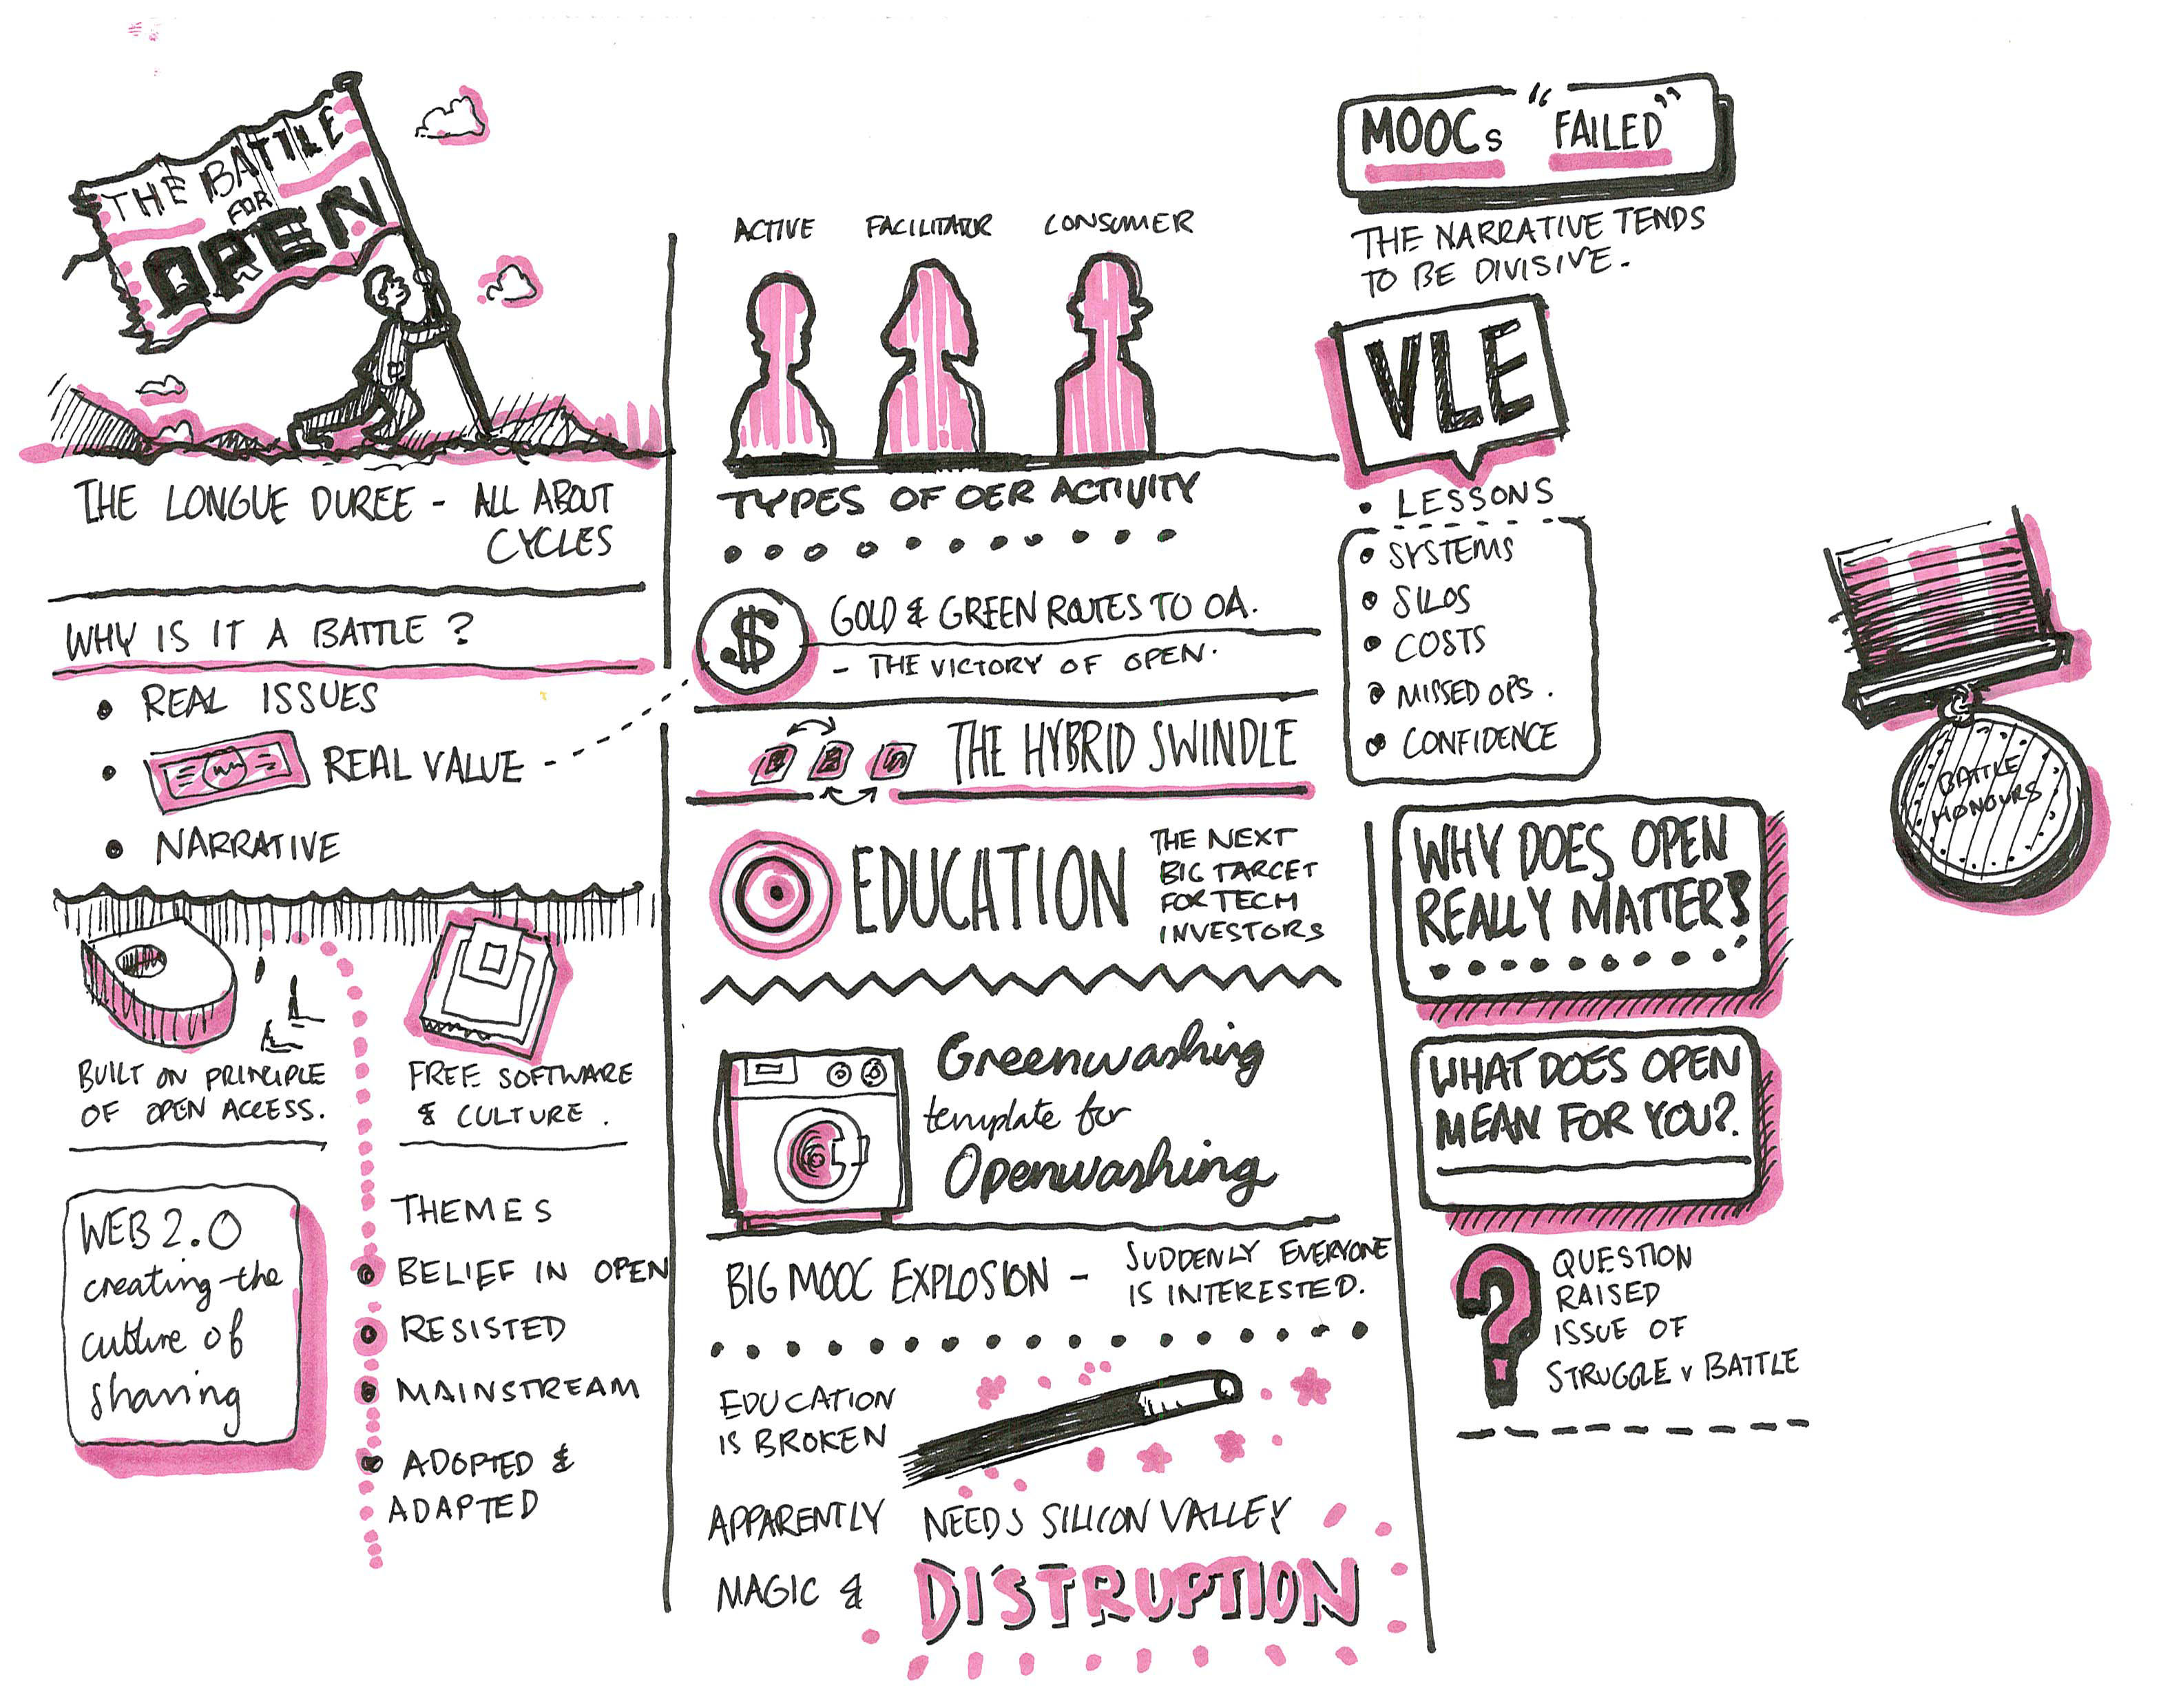 THE BATTLE
FOR
OPEN
THE LONGUE DUREE - ALL ABOUT
CYCLES
WHY IS IT A BATTLE?
• REAL ISSUES
• REAL VALUE
• NARRATIVE
BUILT ON PRINCIPLE
OF OPEN ACCESS.
FREE SOFTWARE
& CULTURE.
WEB 2.0
creating the
culture of
sharing
THEMES
BELIEF IN OPEN
RESISTED
MAINSTREAM
ADOPTED &
ADAPTED
ACTIVE FACILITATOR CONSUMER
TYPES OF OER ACTIVITY
$
GOLD & GREEN ROUTES TO OA.
- THE VICTORY OF OPEN.
THE HYBRID SWINDLE
EDUCATION
THE NEXT
BIG TARGET
FOR TECH
INVESTORS
Greenwashing
template for
Openwashing
BIG MOOC EXPLOSION -
SUDDENLY EVERYONE
IS INTERESTED.
EDUCATION
IS BROKEN
APPARENTLY NEEDS SILICON VALLEY
MAGIC & DISTRUPTION
MOOCs "FAILED"
THE NARRATIVE TENDS
TO BE DIVISIVE.
VLE
• LESSONS
• SYSTEMS
• SILOS
• COSTS
• MISSED OPS.
• CONFIDENCE
WHY DOES OPEN
REALLY MATTER?
WHAT DOES OPEN
MEAN FOR YOU?
?
QUESTION
RAISED
ISSUE OF
STRUGGLE v BATTLE
BATTLE
HONOURS